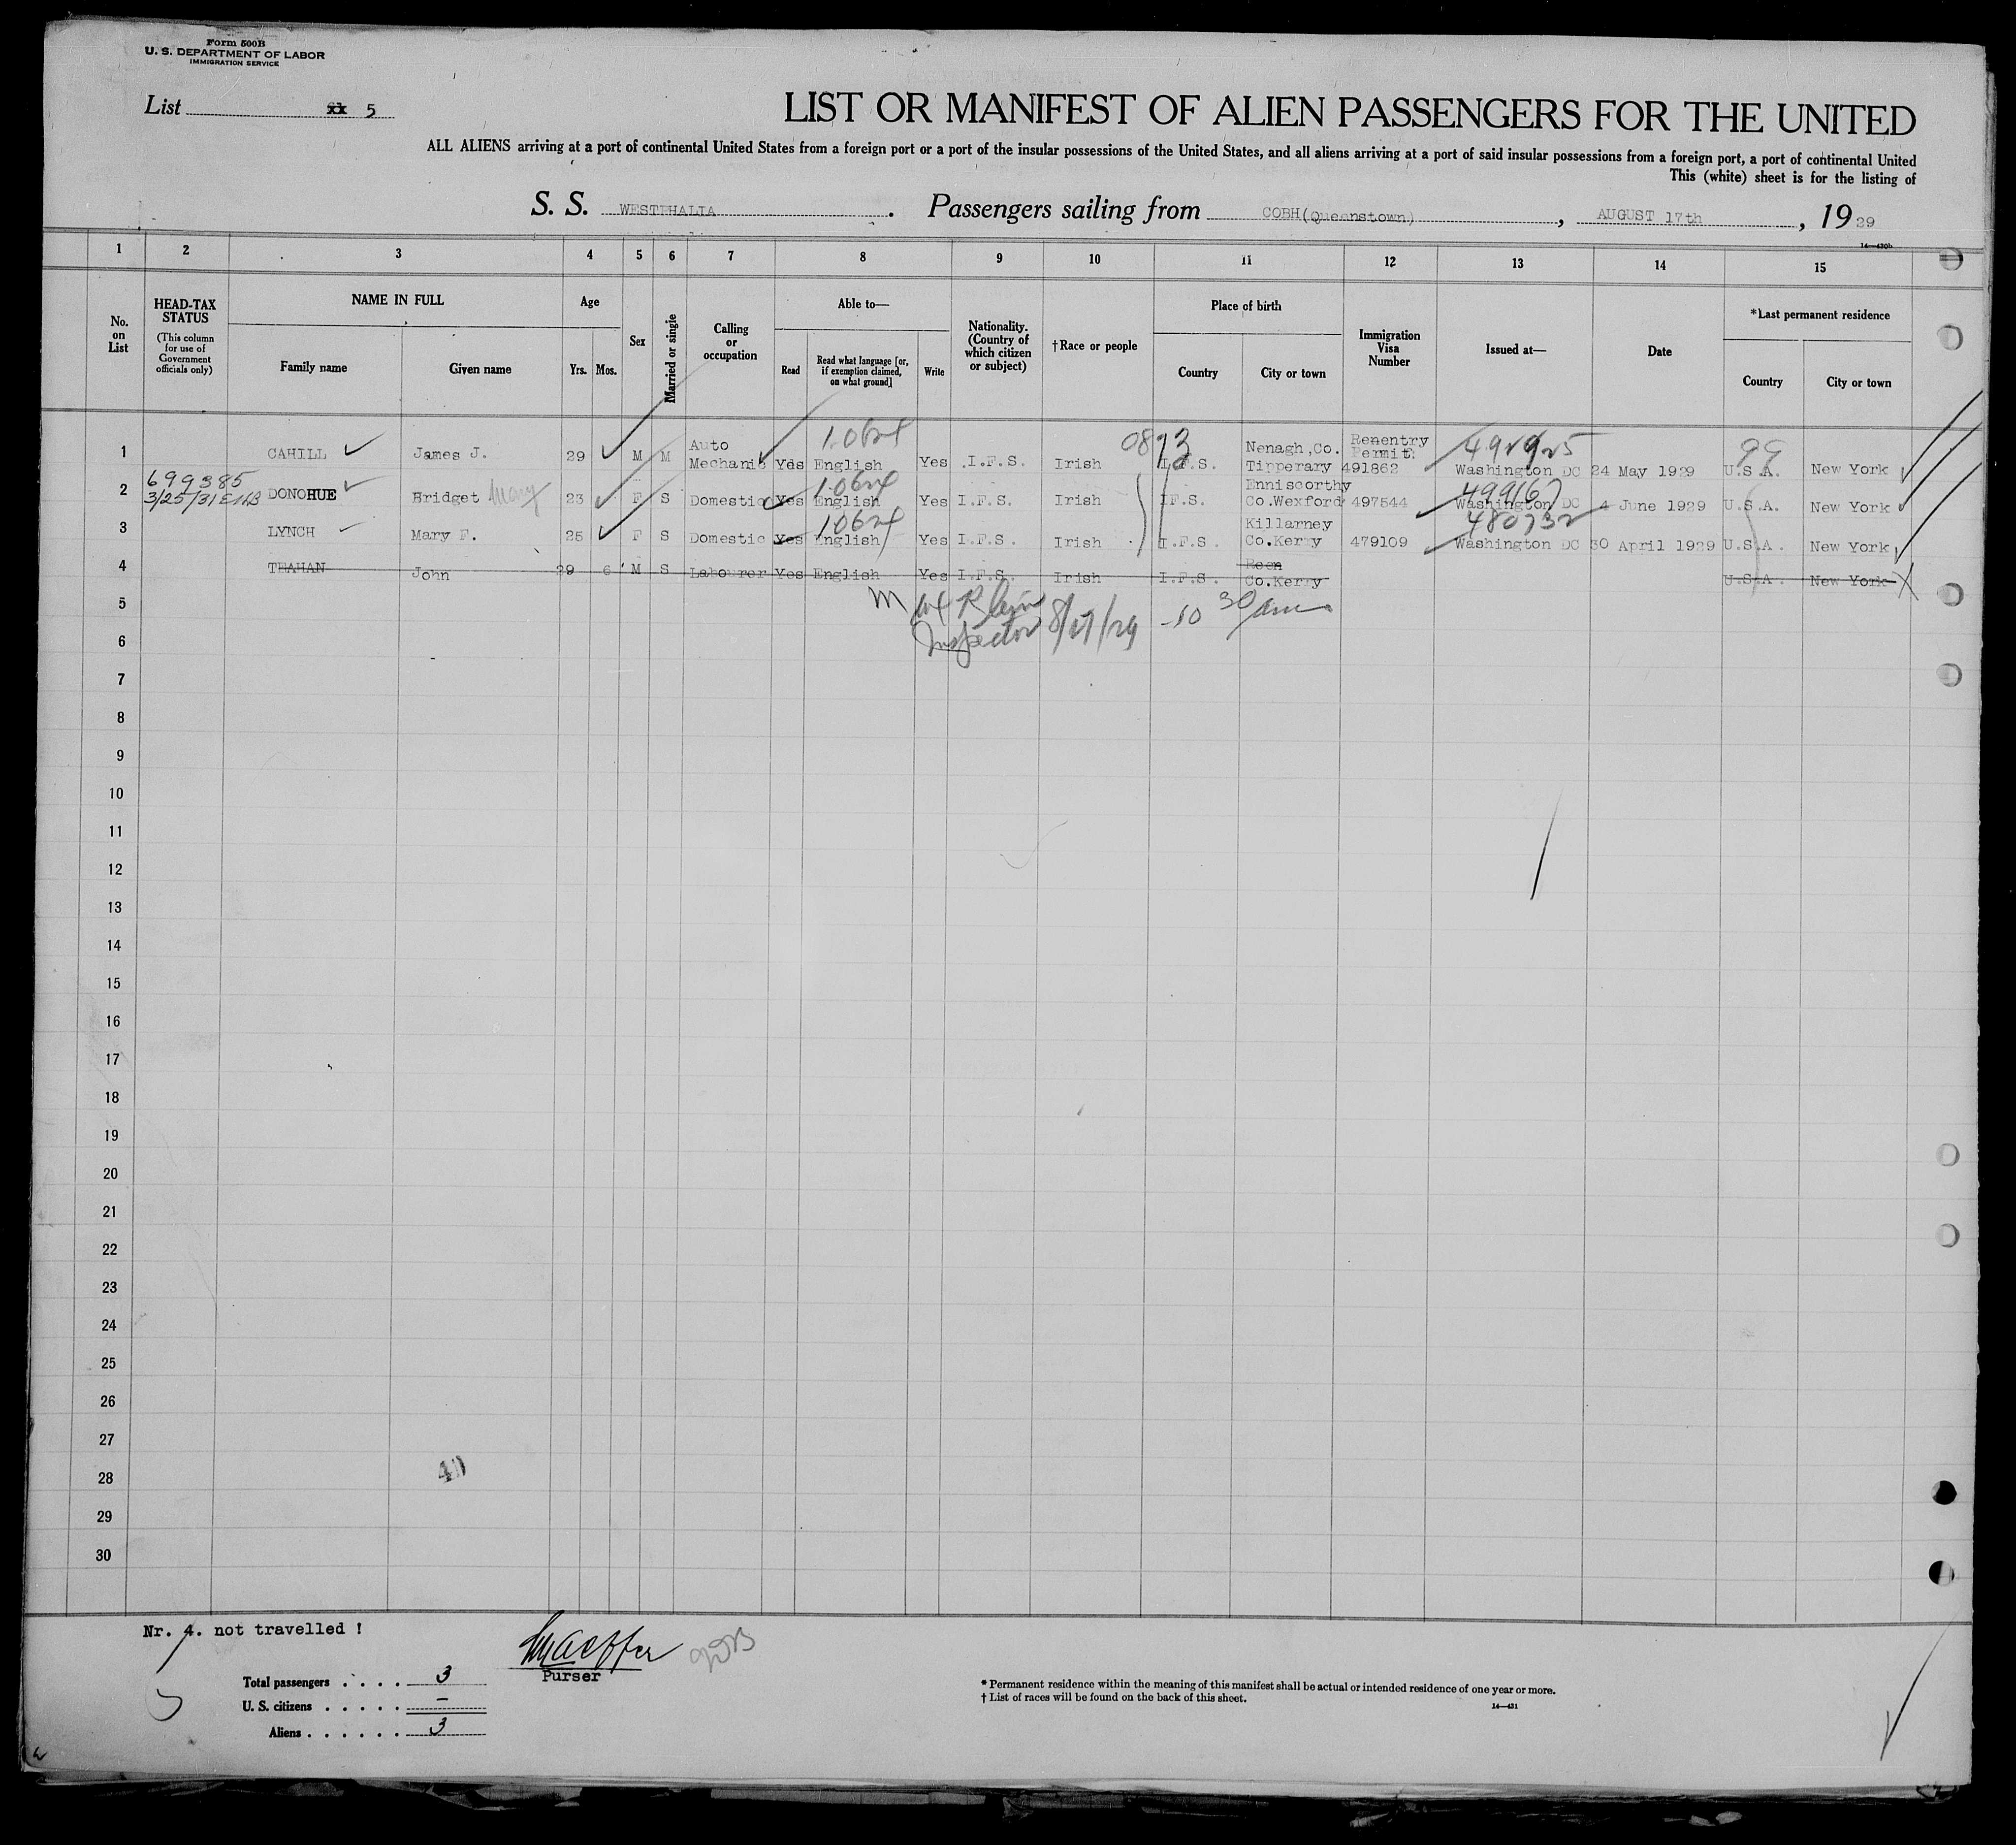 Form 500B
U. S. DEPARTMENT OF LABOR
IMMIGRATION SERVICE
List xx 5
LIST OR MANIFEST OF ALIEN PASSENGERS FOR THE UNITED
ALL ALIENS arriving at a port of continental United States from a foreign port or a port of the insular possessions of the United States, and all aliens arriving at a port of said insular possessions from a foreign port, a port of continental United
This (white) sheet is for the listing of
S. S. WESTPHALIA. Passengers sailing from COBH(Queenstown), AUGUST 17th, 1929
14—430b
1 2 3 4 5 6 7 8 9 10 11 12 13 14 15
No. on List
HEAD-TAX STATUS
(This column for use of Government officials only)
NAME IN FULL
Family name
Given name
Age
Yrs. Mos.
Sex
Married or single
Calling or occupation
Able to—
Read
Read what language [or, if exemption claimed, on what ground]
Write
Nationality. (Country of which citizen or subject)
†Race or people
Place of birth
Country
City or town
Immigration Visa Number
Issued at—
Date
*Last permanent residence
Country
City or town
1 CAHILL James J. 29 M M Auto Mechanic Yes English Yes I.F.S. Irish I.F.S. Nenagh,Co. Tipperary Reentry Permit: 491862 Washington DC 24 May 1929 U.S.A. New York
0873
492925
99
699385
3/25/31
2 DONOHUE Bridget Mary 23 F S Domestic Yes English Yes I.F.S. Irish I.F.S. Enniscorthy Co.Wexford 497544 Washington DC 4 June 1929 U.S.A. New York
499167
3 LYNCH Mary F. 25 F S Domestic Yes English Yes I.F.S. Irish I.F.S. Killarney Co.Kerry 479109 Washington DC 30 April 1929 U.S.A. New York
480732
4 TRAHAN John 29 6 M S Labourer Yes English Yes I.F.S. Irish I.F.S. Co.Kerry U.S.A. New York
5
Inspector 8/27/29 10 30 am
6
7
8
9
10
11
12
13
14
15
16
17
18
19
20
21
22
23
24
25
26
27
28
29
30
Nr. 4. not travelled !
Purser
Total passengers . . . . 3
U. S. citizens . . . . . –
Aliens . . . . . . 3
* Permanent residence within the meaning of this manifest shall be actual or intended residence of one year or more.
† List of races will be found on the back of this sheet.
14—431